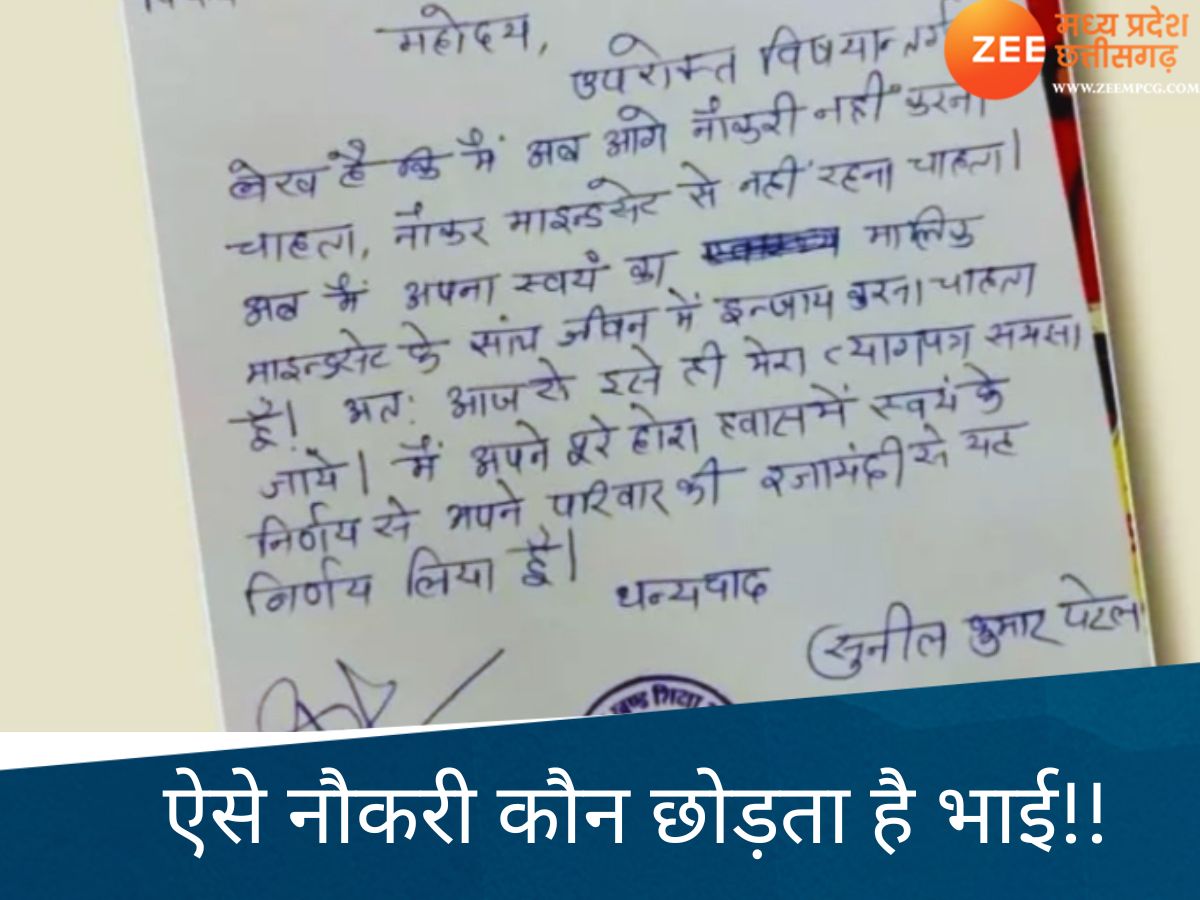 महोदय,
मध्य प्रदेश
छत्तीसगढ़
ZEE
WWW.ZEEMPCG.COM
उपरोक्त विषयान्तर्ग
लेख है कि मैं अब आगे नौकरी नहीं करना
चाहता, नौकर माइन्डसेट से नहीं रहना चाहता।
अब मैं अपना स्वयं का मालिक
माइन्डसेट के साथ जीवन में इन्जाय करना चाहता
हूँ। अतः आज से इसे ही मेरा त्यागपत्र समझा
जाये। मैं अपने पूरे होश हवास में स्वयं के
निर्णय से अपने परिवार की रजामंदी से यह
निर्णय लिया हूँ।
धन्यवाद
(सुनील कुमार पटेल
ऐसे नौकरी कौन छोड़ता है भाई!!